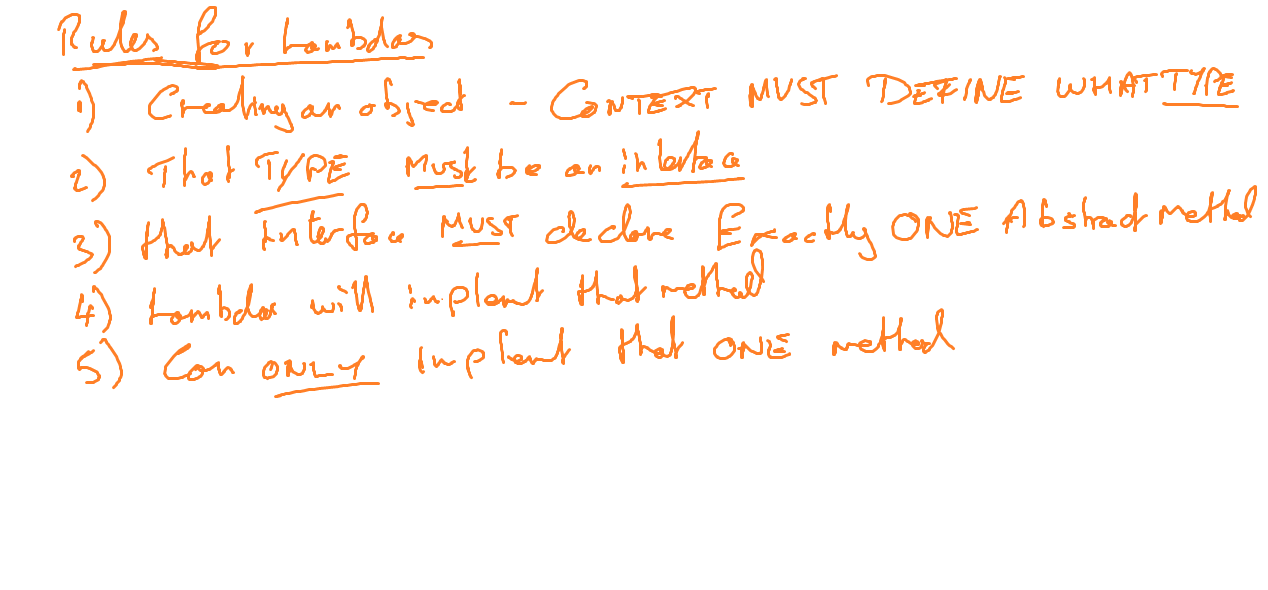 Rules for Lambdas
1) Creating an object - CONTEXT MUST DEFINE WHAT TYPE
2) That TYPE MUST be an interface
3) that Interface MUST declare Exactly ONE Abstract Method
4) Lambda will implemt that method
5) Can ONLY implemt that ONE method